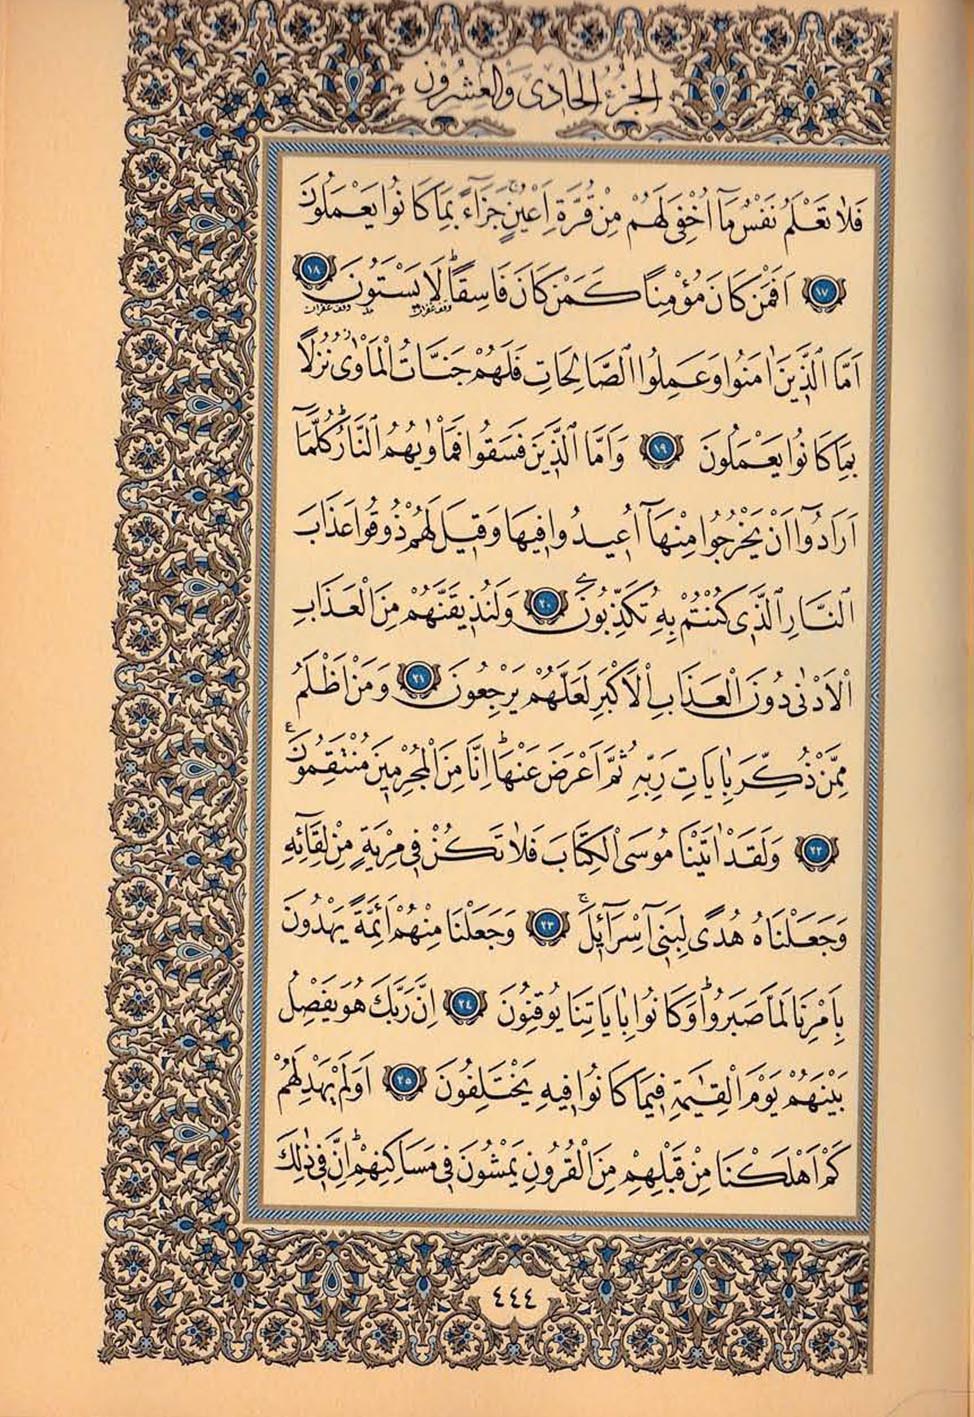 الجزء الحادى والعشرون
فَلَا تَعْلَمُ نَفْسٌ مَآ اُخْفِىَ لَهُمْ مِنْ قُرَّةِ اَعْيُنٍۚ جَزَآءً بِمَا كَانُوا يَعْمَلُونَ
﴿١٧﴾ اَفَمَنْ كَانَ مُؤْمِنًا كَمَنْ كَانَ فَاسِقًاۜ لَا يَسْتَوُنَ ﴿١٨﴾
اَمَّا الَّذِينَ اٰمَنُوا وَعَمِلُوا الصَّالِحَاتِ فَلَهُمْ جَنَّاتُ الْمَاْوٰىۘ نُزُلًا
بِمَا كَانُوا يَعْمَلُونَ ﴿١٩﴾ وَاَمَّا الَّذِينَ فَسَقُوا فَمَاْوٰيهُمُ النَّارُۜ كُلَّمَآ
اَرَادُوٓا اَنْ يَخْرُجُوا مِنْهَآ اُعِيدُوا فِيهَا وَقِيلَ لَهُمْ ذُوقُوا عَذَابَ
النَّارِ الَّذِى كُنْتُمْ بِهِ تُكَذِّبُونَ ﴿٢٠﴾ وَلَنُذِيقَنَّهُمْ مِنَ الْعَذَابِ
الْاَدْنٰى دُونَ الْعَذَابِ الْاَكْبَرِ لَعَلَّهُمْ يَرْجِعُونَ ﴿٢١﴾ وَمَنْ اَظْلَمُ
مِمَّنْ ذُكِّرَ بِاٰيَاتِ رَبِّهِ ثُمَّ اَعْرَضَ عَنْهَاۜ اِنَّا مِنَ الْمُجْرِمِينَ مُنْتَقِمُونَ
﴿٢٢﴾ وَلَقَدْ اٰتَيْنَا مُوسَى الْكِتَابَ فَلَا تَكُنْ فِى مِرْيَةٍ مِنْ لِقَآئِهِ
وَجَعَلْنَاهُ هُدًى لِبَنِىٓ اِسْرَآئِلَۚ ﴿٢٣﴾ وَجَعَلْنَا مِنْهُمْ اَئِمَّةً يَهْدُونَ
بِاَمْرِنَا لَمَّا صَبَرُواۜ وَكَانُوا بِاٰيَاتِنَا يُوقِنُونَ ﴿٢٤﴾ اِنَّ رَبَّكَ هُوَ يَفْصِلُ
بَيْنَهُمْ يَوْمَ الْقِيٰمَةِ فِيمَا كَانُوا فِيهِ يَخْتَلِفُونَ ﴿٢٥﴾ اَوَلَمْ يَهْدِ لَهُمْ
كَمْ اَهْلَكْنَا مِنْ قَبْلِهِمْ مِنَ الْقُرُونِ يَمْشُونَ فِى مَسَاكِنِهِمْۜ اِنَّ فِى ذٰلِكَ
٤٤٤